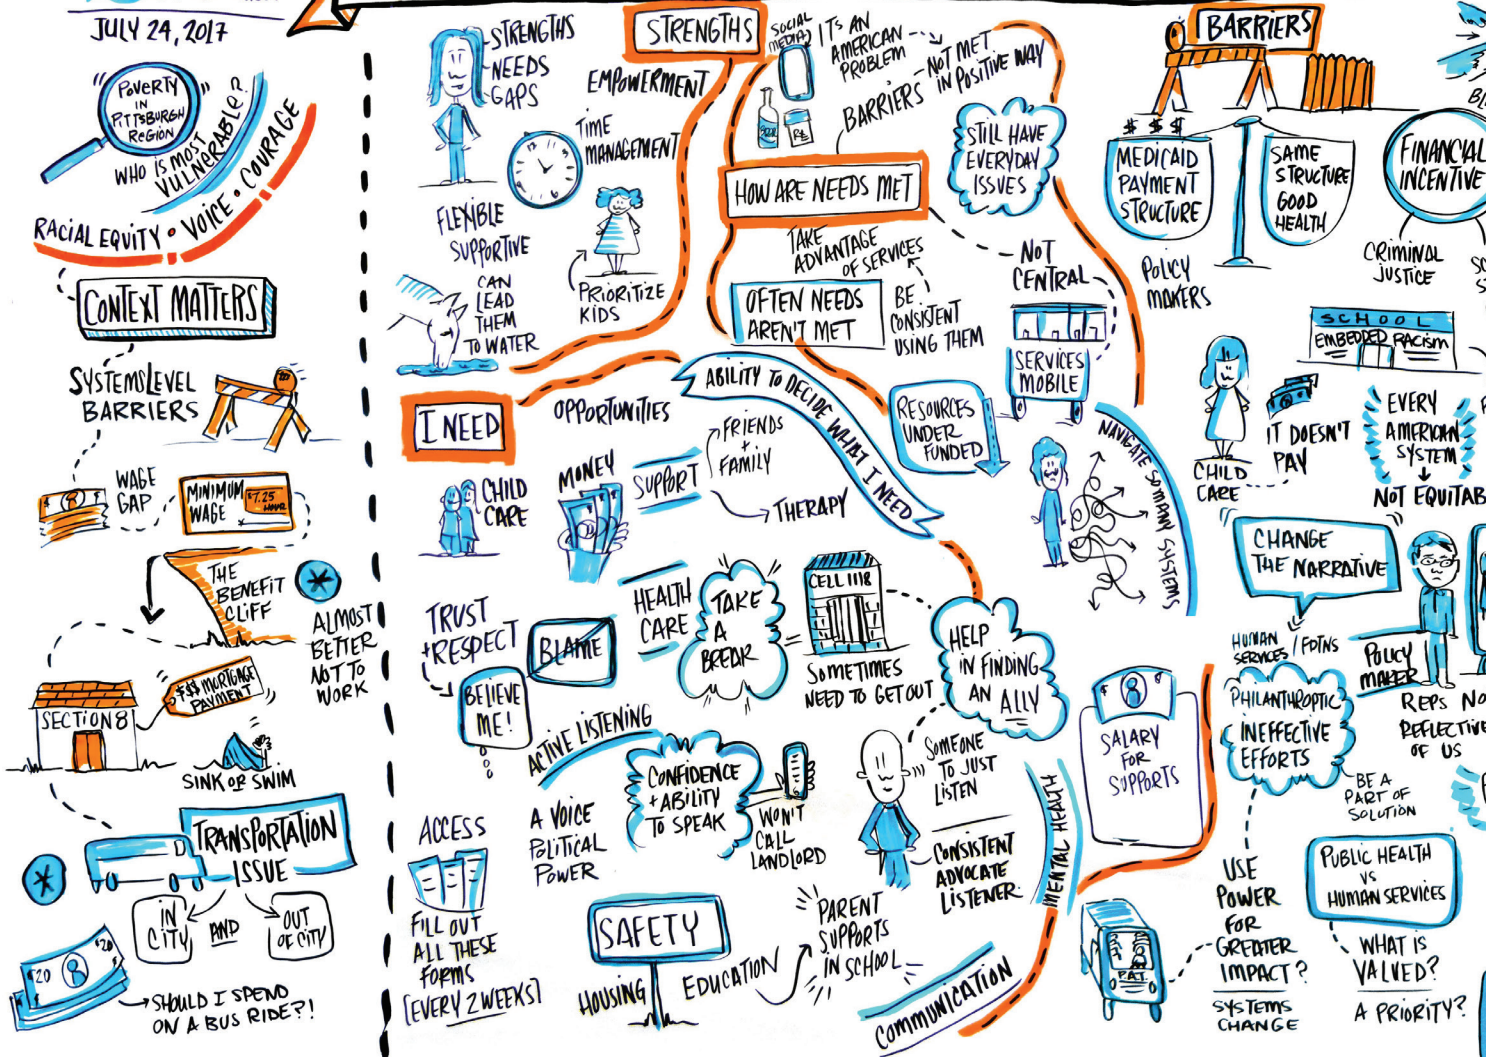 JULY 24, 2017
POVERTY
IN
PITTSBURGH
REGION
WHO IS MOST
VULNERABLE?
RACIAL EQUITY • VOICE • COURAGE
CONTEXT MATTERS
SYSTEMS LEVEL
BARRIERS
WAGE
GAP
MINIMUM
WAGE
$7.25
HOUR
THE
BENEFIT
CLIFF
ALMOST
BETTER
NOT TO
WORK
$$$ MORTGAGE
PAYMENT
SECTION 8
SINK OR SWIM
TRANSPORTATION
ISSUE
IN
CITY
AND
OUT
OF CITY
$20
$20
SHOULD I SPEND
ON A BUS RIDE?!
STRENGTHS
STRENGTHS
NEEDS
GAPS
EMPOWERMENT
TIME
MANAGEMENT
FLEXIBLE
SUPPORTIVE
CAN
LEAD
THEM
TO WATER
PRIORITIZE
KIDS
SOCIAL
MEDIA
IT'S AN
AMERICAN
PROBLEM
NOT MET
IN POSITIVE WAY
BARRIERS
RX
STILL HAVE
EVERYDAY
ISSUES
HOW ARE NEEDS MET
TAKE
ADVANTAGE
OF SERVICES
BE
CONSISTENT
USING THEM
OFTEN NEEDS
AREN'T MET
NOT
CENTRAL
SERVICES
MOBILE
RESOURCES
UNDER
FUNDED
NAVIGATE SO MANY SYSTEMS
I NEED
OPPORTUNITIES
ABILITY TO DECIDE WHAT I NEED
CHILD
CARE
MONEY
SUPPORT
FRIENDS
+
FAMILY
THERAPY
TRUST
+ RESPECT
BLAME
BELIEVE
ME!
HEALTH
CARE
TAKE
A
BREAK
CELL 1118
SOMETIMES
NEED TO GET OUT
HELP
IN FINDING
AN ALLY
ACTIVE LISTENING
CONFIDENCE
+ ABILITY
TO SPEAK
WON'T
CALL
LANDLORD
SOMEONE
TO JUST
LISTEN
CONSISTENT
ADVOCATE
LISTENER
MENTAL HEALTH
ACCESS
FILL OUT
ALL THESE
FORMS
[EVERY 2 WEEKS]
A VOICE
POLITICAL
POWER
SAFETY
HOUSING
EDUCATION
PARENT
SUPPORTS
IN SCHOOL
COMMUNICATION
SALARY
FOR
SUPPORTS
P.A.T.
BARRIERS
$ $ $
MEDICAID
PAYMENT
STRUCTURE
SAME
STRUCTURE
GOOD
HEALTH
FINANCIAL
INCENTIVE
CRIMINAL
JUSTICE
POLICY
MAKERS
SCHOOL
EMBEDDED RACISM
CHILD
CARE
IT DOESN'T
PAY
EVERY
AMERICAN
SYSTEM
NOT EQUITAB
CHANGE
THE NARRATIVE
HUMAN
SERVICES / FDTNS
PHILANTHROPTIC
INEFFECTIVE
EFFORTS
POLICY
MAKER
REPS NO
REFLECTIVE
OF US
BE A
PART OF
SOLUTION
USE
POWER
FOR
GREATER
IMPACT?
SYSTEMS
CHANGE
PUBLIC HEALTH
VS
HUMAN SERVICES
WHAT IS
VALVED?
A PRIORITY?